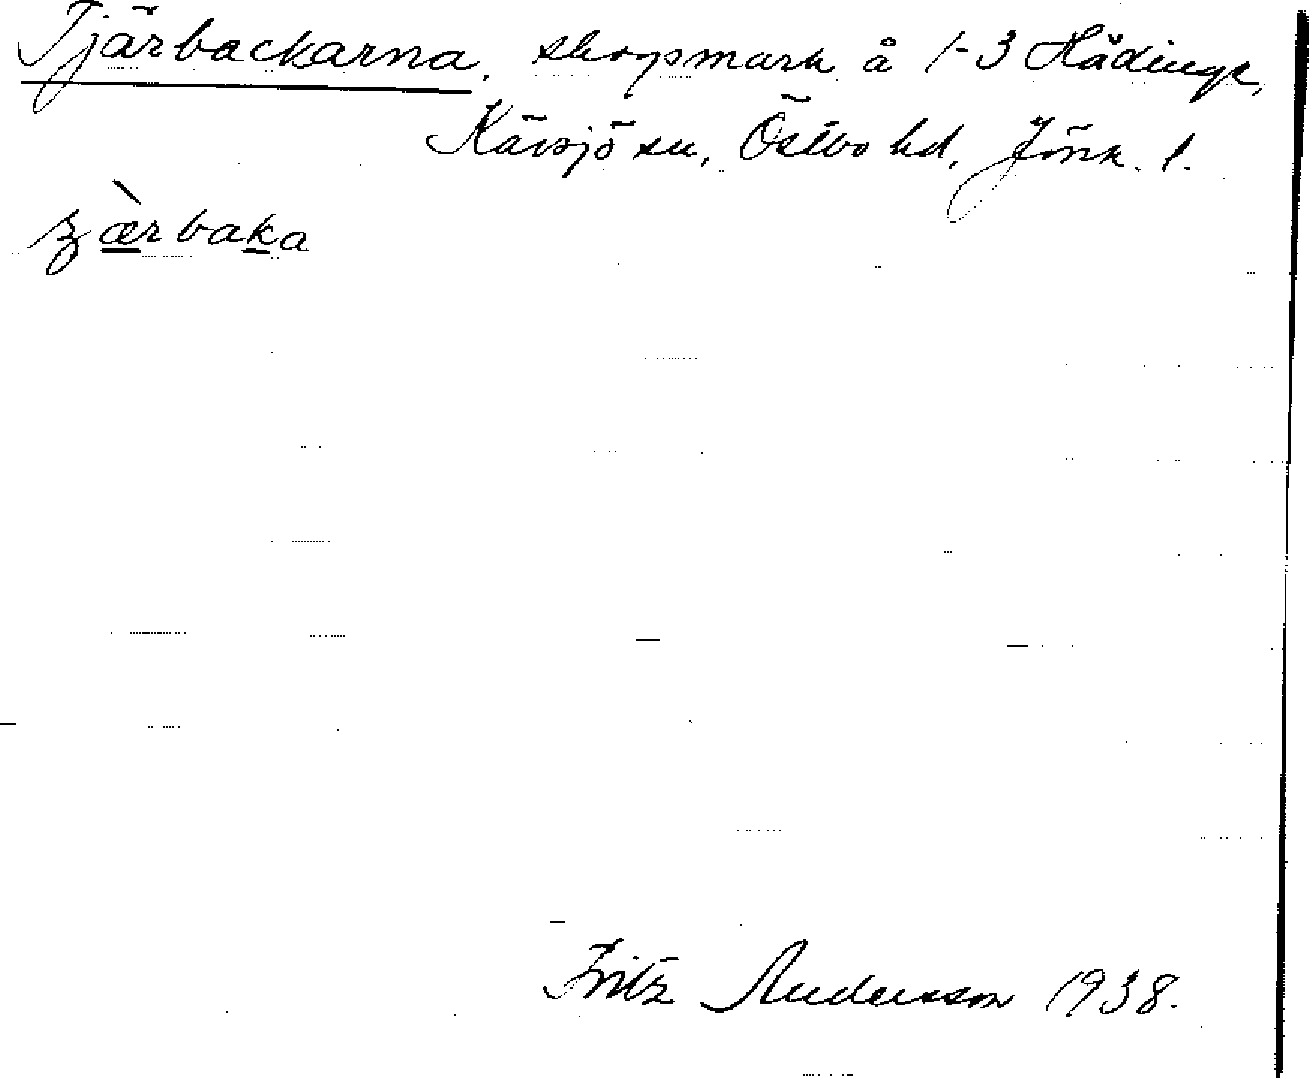 Tjärbackarna, skogsmark å 1-3 Hådinge,
Kävsjö sn, Östbo hd, Jönk. l.
ʒæ̀rbaka
Fritz Andersson 1938.